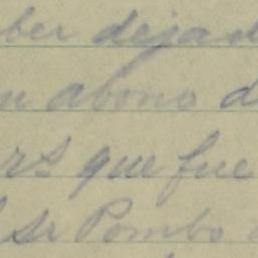 ber dejad
n abono d
rs que fue
l sr Pombo